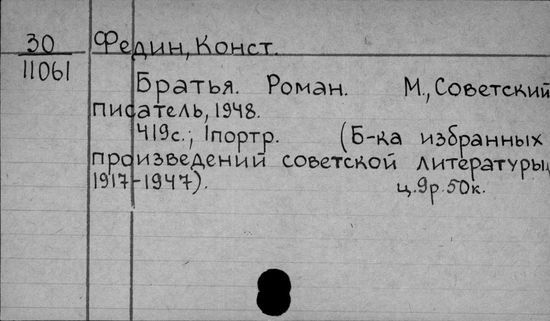 30
11061
Федин, Конст.
Братья. Роман. М., Советский
писатель, 1948.
419с.; 1портр. (Б-ка избранных
произведений советской литературы,
1917-1947). ц. 9р. 50к.